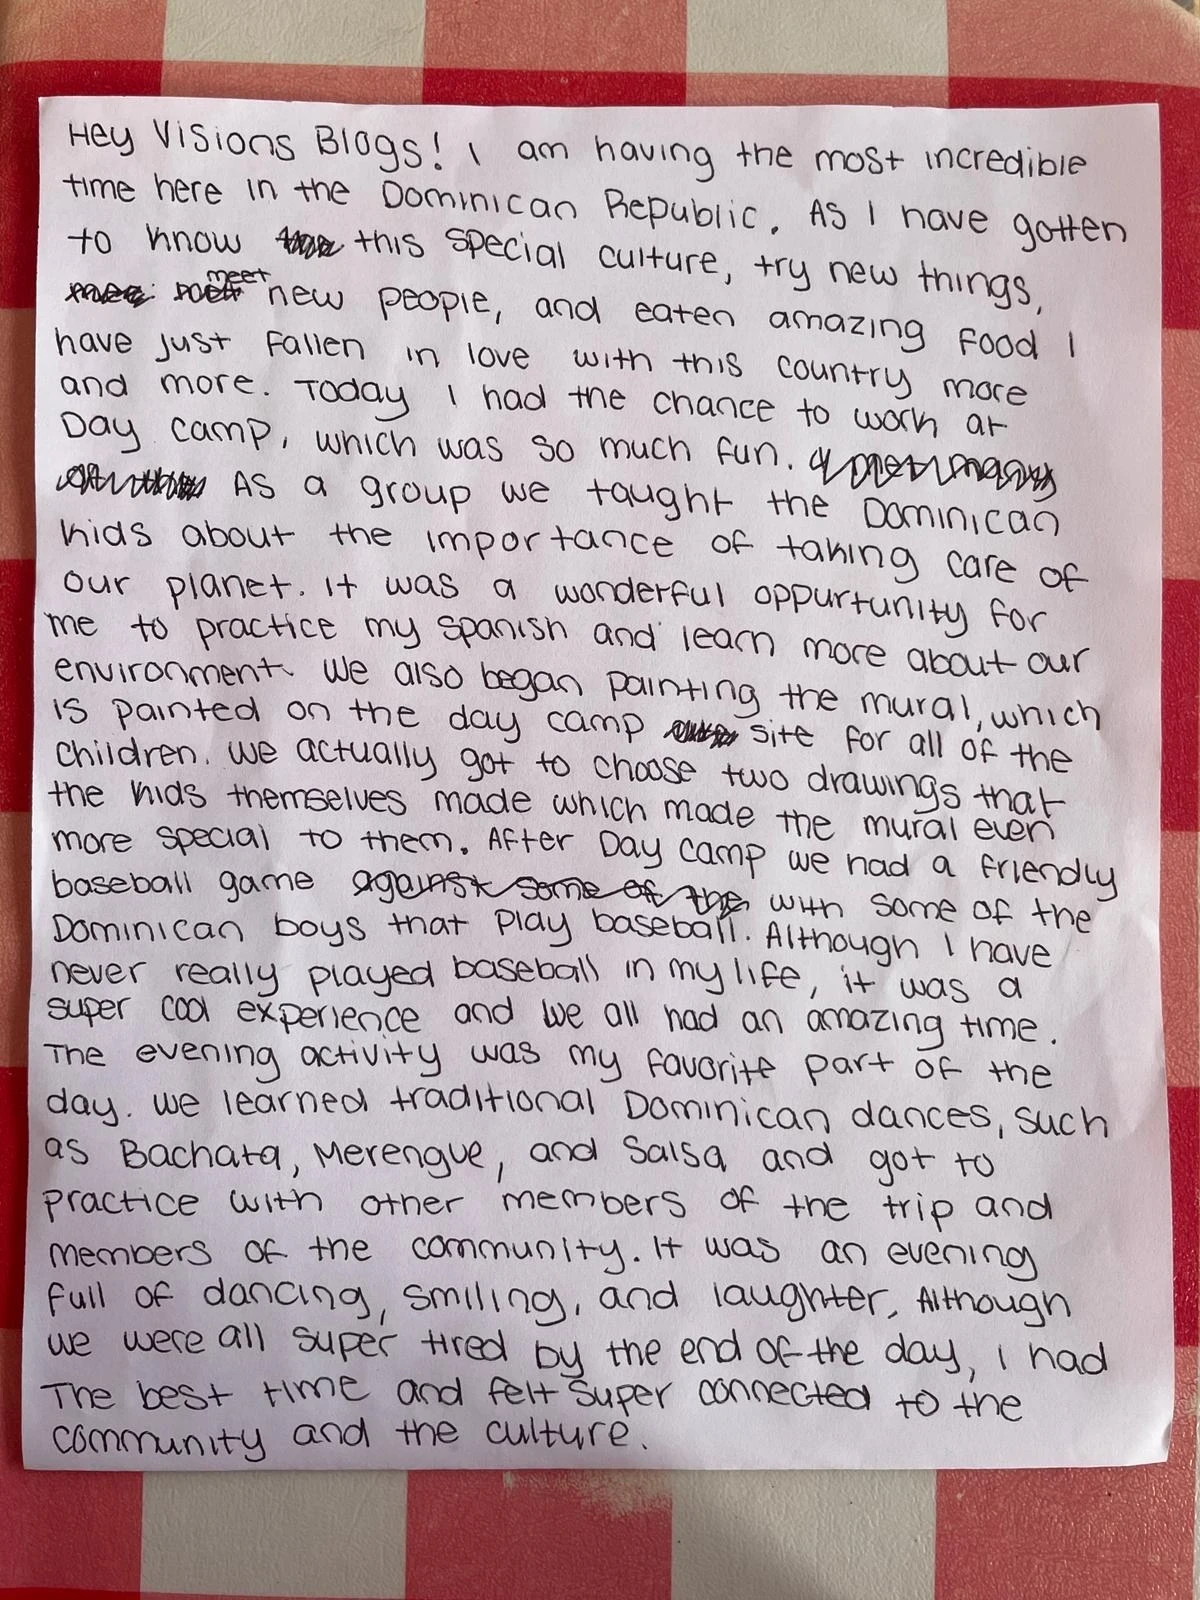 Hey Visions Blogs! I am having the most incredible
time here in the Dominican Republic. As I have gotten
to know this special culture, try new things,
meet new people, and eaten amazing food I
have just fallen in love with this country more
and more. Today I had the chance to work at
Day camp, which was so much fun.
As a group we taught the Dominican
kids about the importance of taking care of
our planet. It was a wonderful oppurtunity for
me to practice my spanish and learn more about our
environment. We also began painting the mural, which
is painted on the day camp site for all of the
children. We actually got to choose two drawings that
the kids themselves made which made the mural even
more special to them. After Day camp we had a friendly
baseball game against some of the with some of the
Dominican boys that play baseball. Although I have
never really played baseball in my life, it was a
super cool experience and we all had an amazing time.
The evening activity was my favorite part of the
day. We learned traditional Dominican dances, such
as Bachata, Merengue, and Salsa and got to
practice with other members of the trip and
members of the community. It was an evening
full of dancing, smiling, and laughter. Although
we were all super tired by the end of the day, I had
The best time and felt super connected to the
community and the culture.